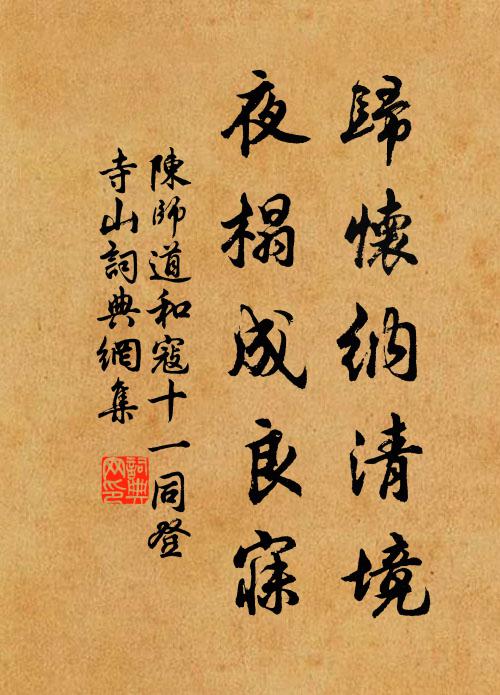 歸懷納清境
夜榻成良寐
陳師道和寇十一同登
寺山詞典網集
詞典網印